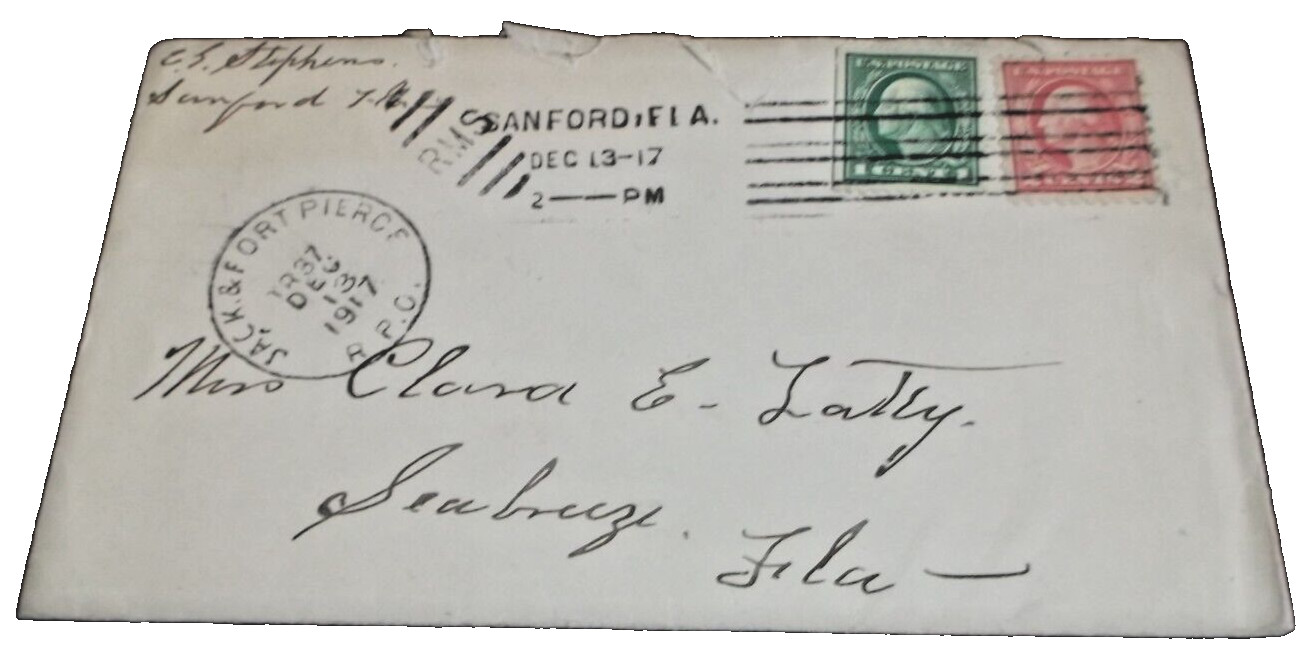 C. E. Stephens.
Sanford Fla.
RMS
SANFORD, FLA.
DEC 13-17
2 —— PM
U.S. POSTAGE
U.S. POSTAGE
2 CENTS 2
JACK. & FORT PIERCE R.P.O.
TR 37
DEC.
13
1917
Miss Clara E. Latty.
Seabreeze.
Fla —